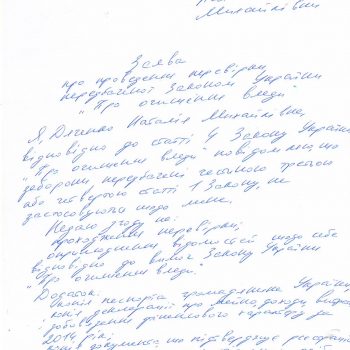 Михайлівни
Заява
про проведення перевірки,
передбаченої Законом України
"Про очищення влади"
Я, Дяченко Наталія Михайлівна,
відповідно до статті 4 Закону України
"Про очищення влади" повідомляю, що
заборони, передбачені частиною третьою
або четвертою статті 1 Закону, не
застосовуються щодо мене.
Надаю згоду на:
проходження перевірки;
оприлюднення відомостей щодо себе
відповідно до вимог Закону України
"Про очищення влади".
Додаток:
копія паспорта громадянина України
копія декларації про майно, доходи, витрати
і зобов'язання фінансового характеру за
2014 рік;
копія документа що підтверджує реєстрацію